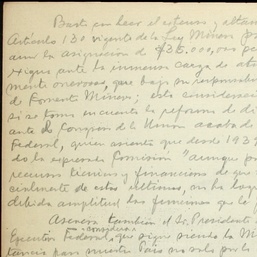 Basta con leer el extenso y
Artículo 130 vigente de la Ley Minera
aun la asignación de $25.000,00
exigua ante la inmensa carga de
mente onerosa, que bajo su
de Fomento Minero; esta
si se toma en cuenta la reforma
ante el Congreso de la Unión acaba de
Federal, quien asienta que desde 193
do la expresada Comisión "aunque
recursos técnicos y financieros de que
cialmente de estos últimos, no ha
debida amplitud las funciones que le
Asevera también el Sr. Presidente
considera
Ejecutivo Federal, que sigue siendo la
tancia para nuestro País no solo por